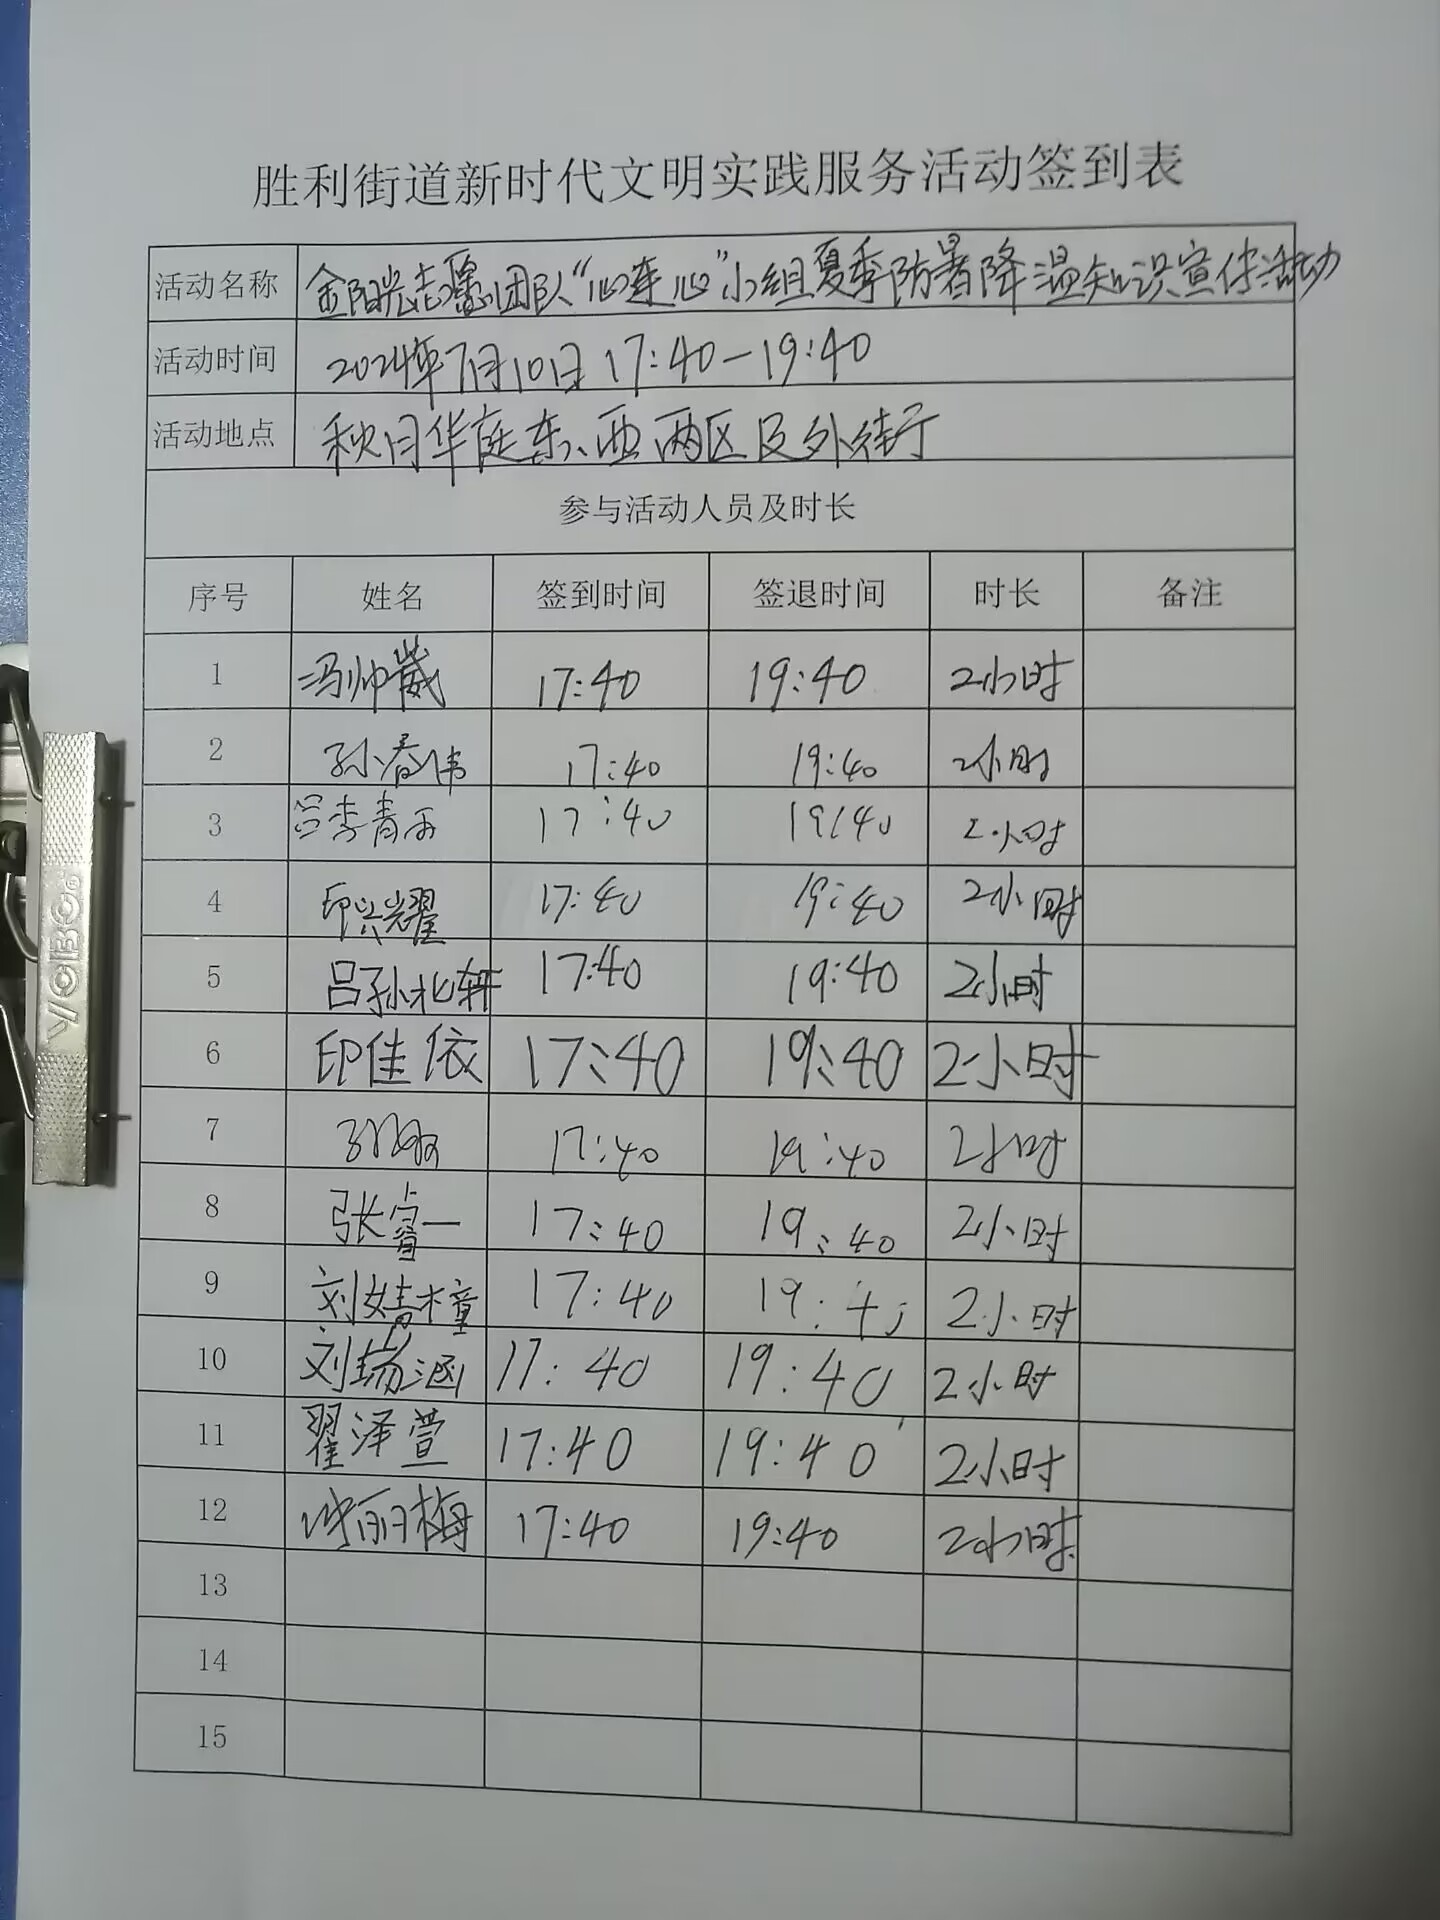 胜利街道新时代文明实践服务活动签到表
活动名称 金阳光志愿团队“心连心”小组夏季防暑降温知识宣传活动
活动时间 2024年7月10日17:40—19:40
活动地点 秋月华庭东、西两区及外街
参与活动人员及时长
序号 姓名 签到时间 签退时间 时长 备注
1 冯帅崴 17:40 19:40 2小时
2 孙春伟 17:40 19:40 2小时
3 吕李青 17:40 19:40 2小时
4 印兴耀 17:40 19:40 2小时
5 吕孙北轩 17:40 19:40 2小时
6 印佳依 17:40 19:40 2小时
7 17:40 19:40 2小时
8 张睿一 17:40 19:40 2小时
9 刘婧橦 17:40 19:40 2小时
10 刘瑒涵 17:40 19:40 2小时
11 翟泽萱 17:40 19:40 2小时
12 许丽梅 17:40 19:40 2小时
13
14
15